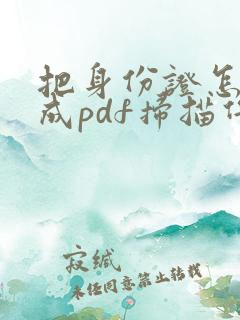 把身份證怎
成pdf掃描件
寂緘
未经同意禁止转载